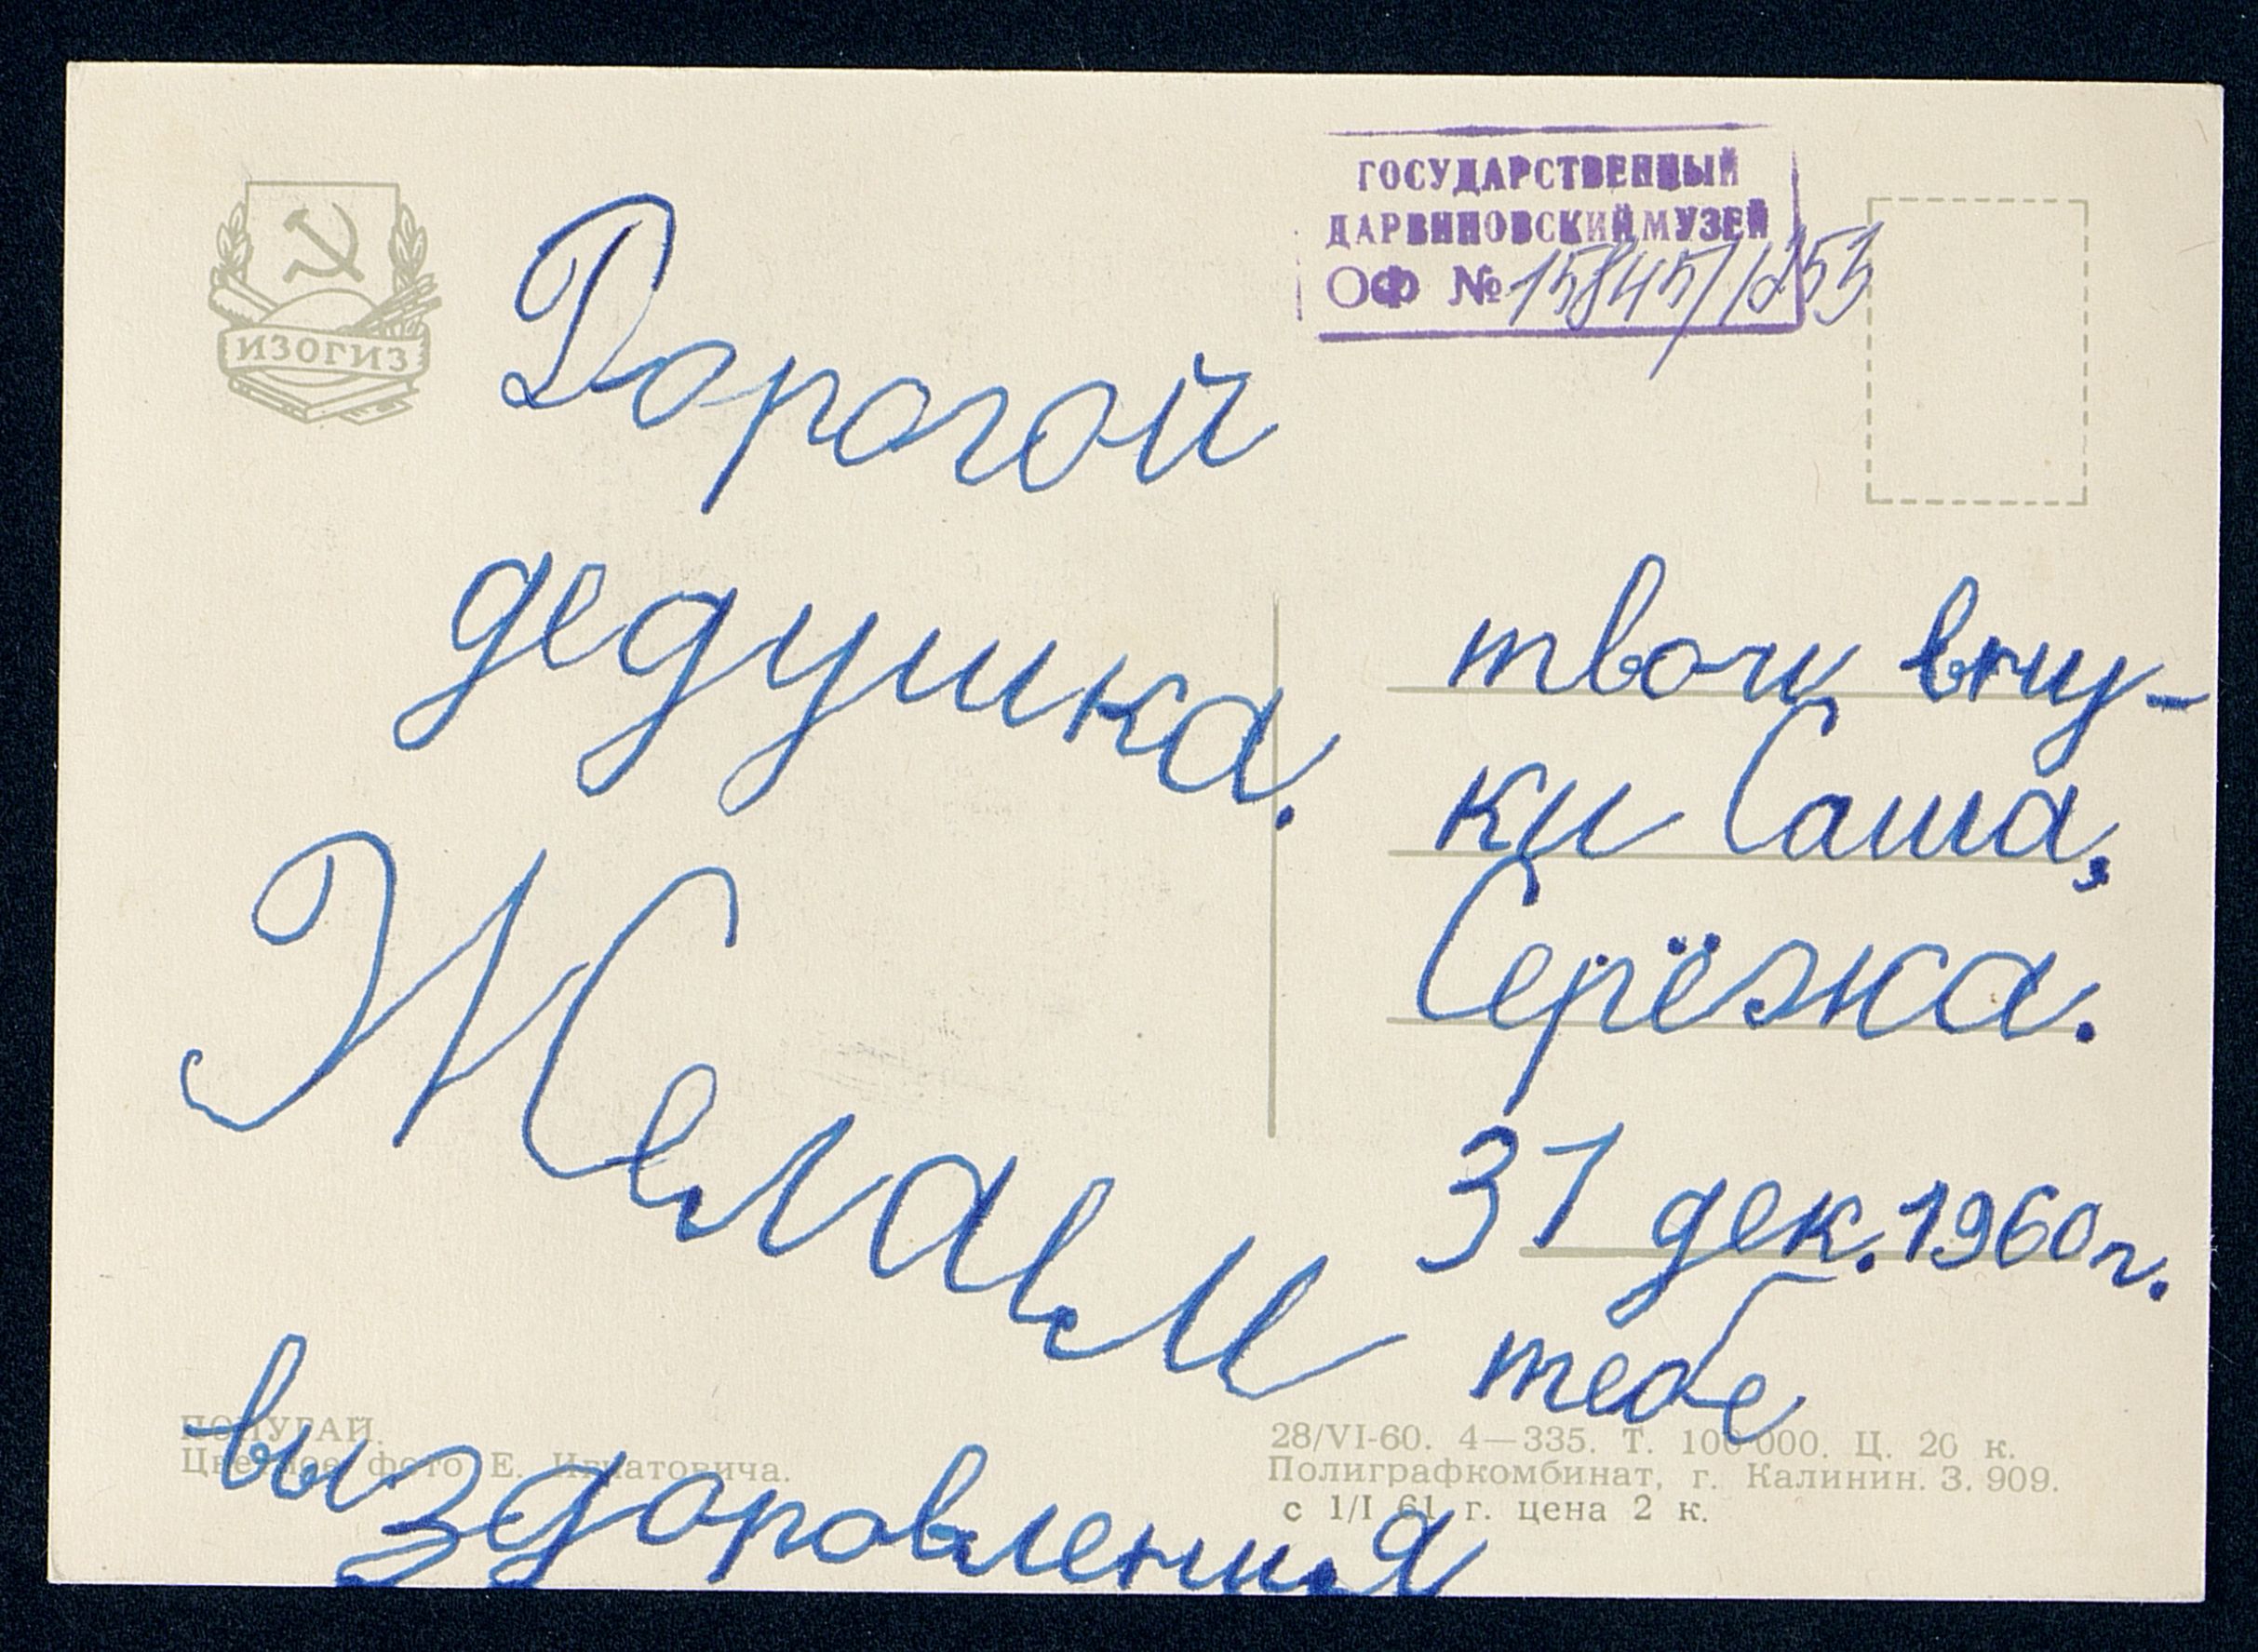 ИЗОГИЗ
ГОСУДАРСТВЕННЫЙ
ДАРВИНОВСКИЙ МУЗЕЙ
ОФ № 15845/1253
Дорогой
дедушка.
Желаем тебе
выздоровления
твои вну-
ки Саша,
Серёжа.
31 дек. 1960 г.
ПОПУГАЙ.
Цветное фото Е. Игнатовича.
28/VI-60. 4—335. Т. 100 000. Ц. 20 к.
Полиграфкомбинат, г. Калинин. З. 909.
с 1/I 61 г. цена 2 к.